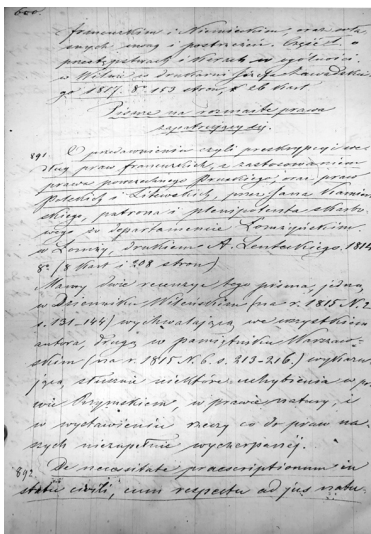 600.
francuzkim i Niemieckim, oraz wła
snych uwag i postrzeżeń. Część I. o
przestępstwach i karach w ogólności.
w Wilnie w drukarni Józefa Zawadzkie
go 1817. 8º 153 stron, i 26 kart
Pisma na rozmaite prawa
zapatrujący się.
891 O przedawnieniu czyli preskrypcyi we
dług praw francuzkich z zastosowaniem
prawa powszechnego Pruskiego; oraz praw
Polskich i Litewskich, przez Jana Kamiń
skiego, patrona i plenipotenta skarbo
wego w departamencie Łomżyńskim.
w Łomży, drukiem A. Lentackiego, 1814
8º (8 kart i 208 stron)
Mamy dwie recenzye tego pisma, jedną
w Dzienniku Wileńskim (na r. 1815 N. 2
s. 131-144) wychwalającą we wszystkiem
autora, drugą w pamiętniku Warszaw
skim (na r. 1815 N. 6. s. 213-216.) wykazu
jącą, słusznie niektóre uchybienia w pra
wie Rzymskiem, w prawie natury, i
w wystawieniu rzeczy co do praw na
szych niezupełnie wyczerpanej.
892 De necessitate praescriptionum in
statu civili, cum respectu ad jus natu-